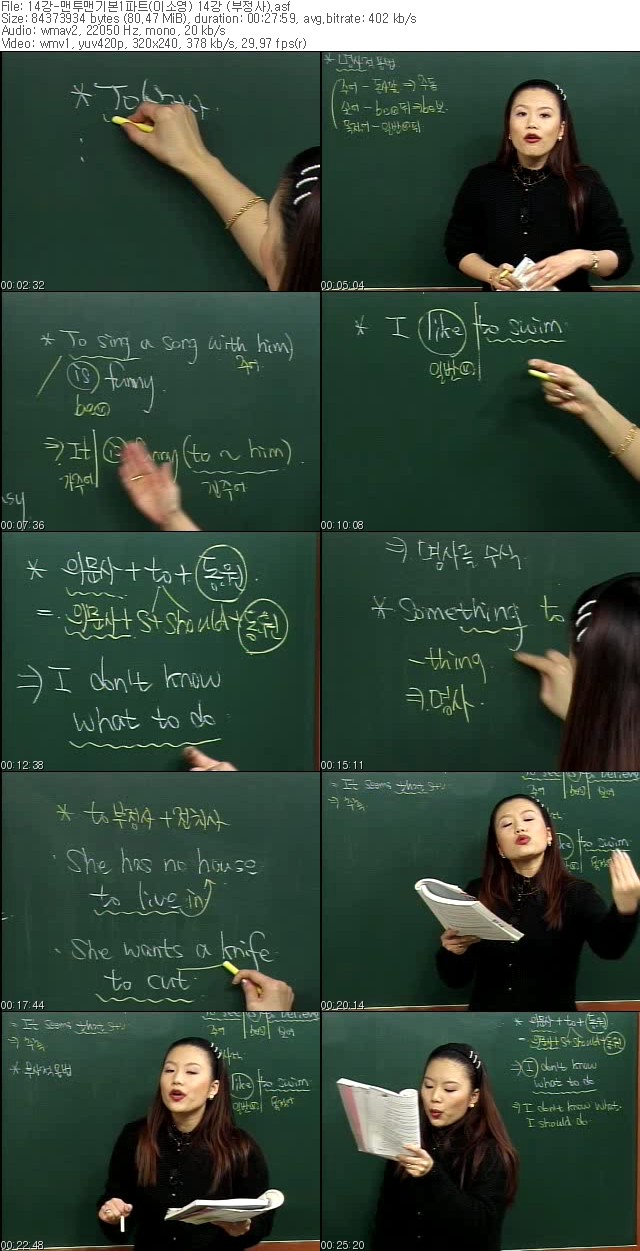 File: 14강-맨투맨기본1파트(이소영) 14강 (부정사).asf
Size: 84373934 bytes (80,47 MiB), duration: 00:27:59, avg,bitrate: 402 kb/s
Audio: wmav2, 22050 Hz, mono, 20 kb/s
Video: wmv1, yuv420p, 320x240, 378 kb/s, 29,97 fps(r)
* To
00:02:32
00:05:04
* To sing a song with him)
주어
(is) funny.
be
⇒ It funny (to ~ him).
가주어 진주어
00:07:36
* I like to swim.
일반
00:10:08
* 의문사 + to + 동원.
= 의문사 + S + should + 동원
⇒ I don't know
what to do.
00:12:38
⇒ 명사를 수식
* Something to
-thing.
⇒ 명사.
00:15:11
* to부정사 + 전치사
· She has no house
to live in
· She wants a knife
to cut
00:17:44
= It seems that S+
to swim
00:20:14
= It seems that S+
like to swim
00:22:48
* 의문사 + to + 동원
= 의문사 + S + should + 동원
⇒ I don't know
what to do
⇒ I don't know what
I should do.
00:25:20